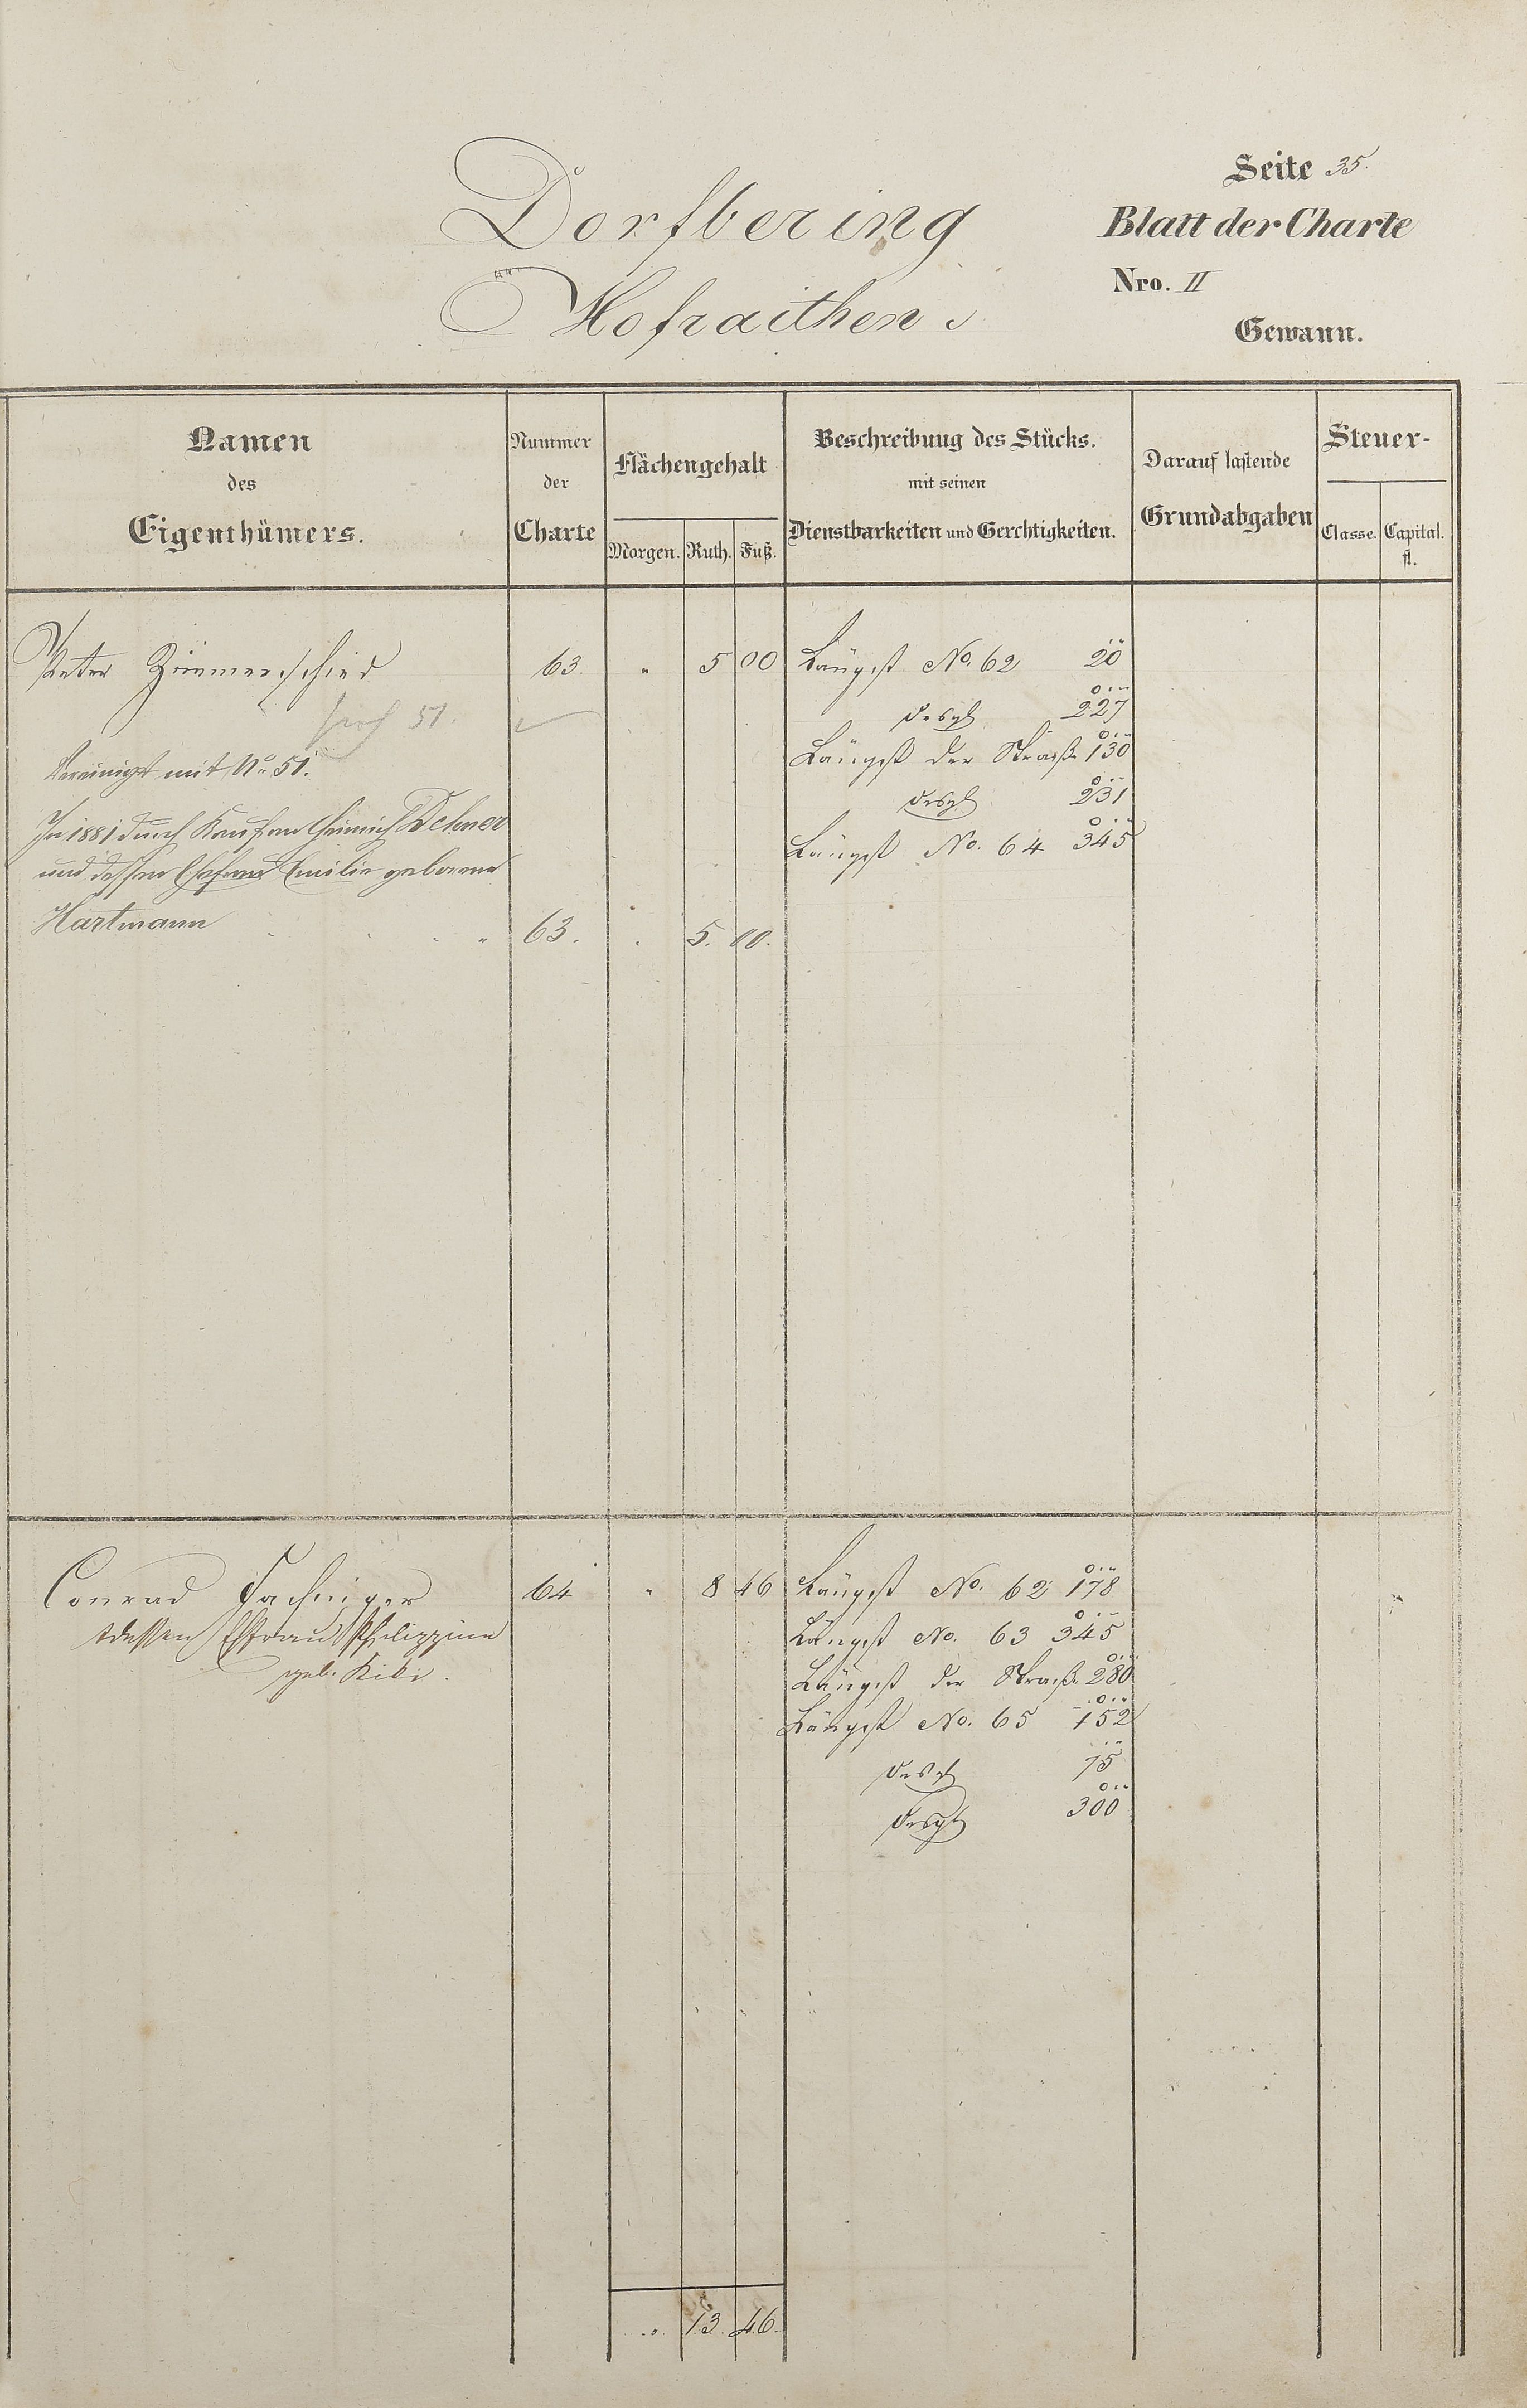 Seite 35.
Dorfbering
Blatt der Charte
Hofraithen
Nro. II
Gewann.
Namen
des
Eigenthümers.
Nummer
der
Charte
Flächengehalt
Morgen. Ruth. Fuß.
Beschreibung des Stücks.
mit seinen
Dienstbarkeiten und Gerchtigkeiten.
Darauf lastende
Grundabgaben
Steuer-
Classe. Capital.
fl.
Peter Zimmerschied 63. " 5 00 Längst No. 62 20
51. desgl 227
Vereinigt mit No 51. Längst der Straße 130
desgl 231
In 1881 durch Kauf an Heinrich Dehner
Längst No. 64 345
und dessen Ehefrau Emilie geborene
Hartmann 63. . 5. 00.
Conrad Fachinger 64 " 8 46 Längst No. 62 178
dessen Ehfrau Philippine Längst No. 63 345
geb. Längst der Straße 280
Längst No. 65 152
desgl 75
desgl 300
" 13. 46.